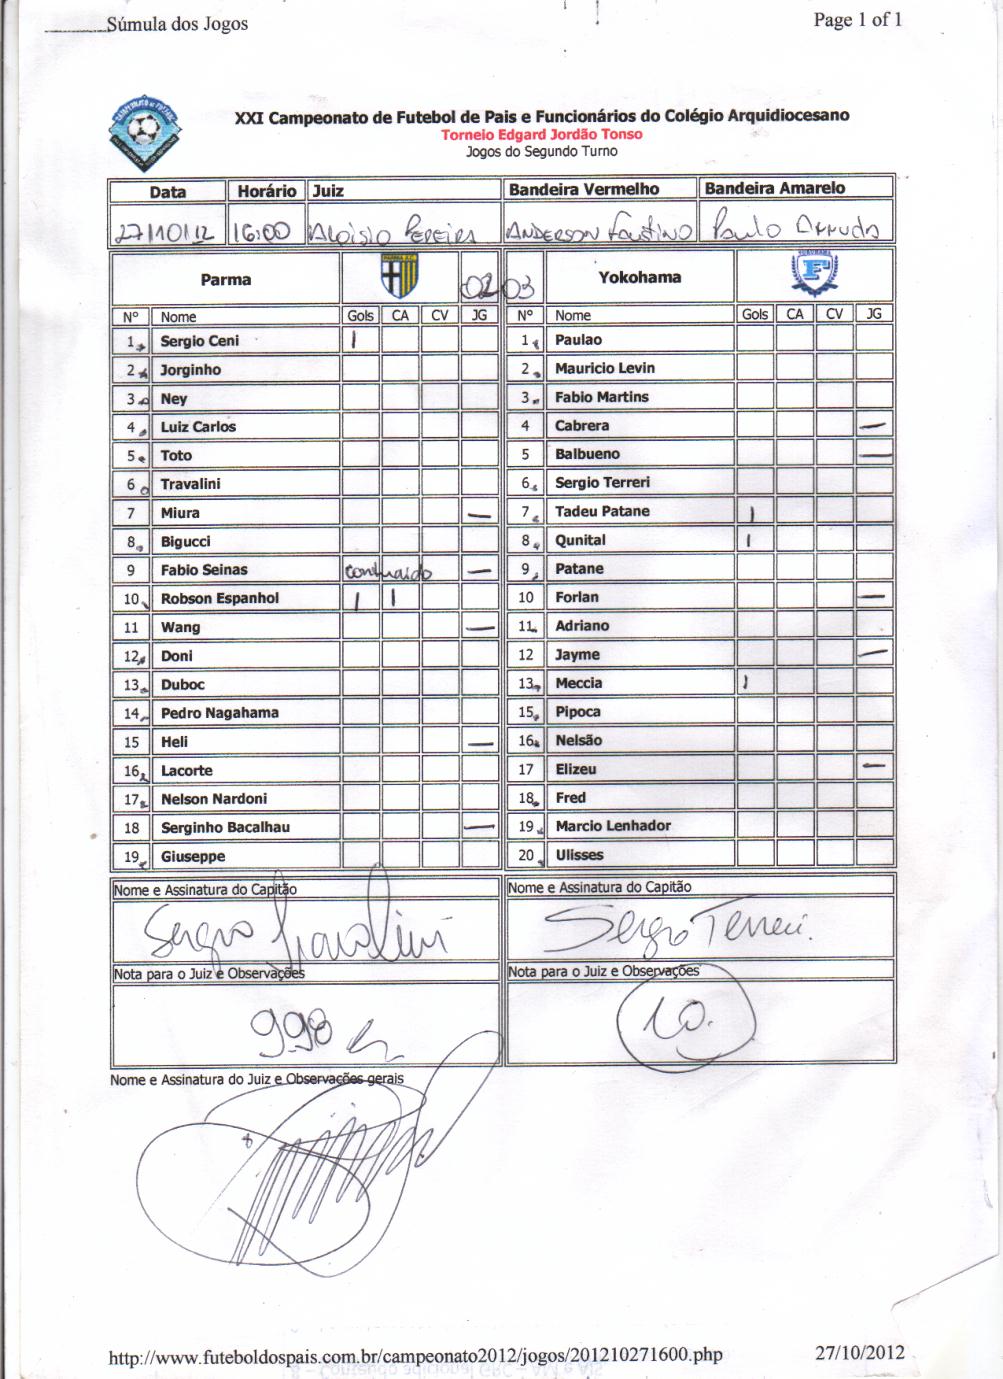 Súmula dos Jogos Page 1 of 1
XXI Campeonato de Futebol de Pais e Funcionários do Colégio Arquidiocesano
Torneio Edgard Jordão Tonso
Jogos do Segundo Turno
Data Horário Juiz Bandeira Vermelho Bandeira Amarelo
27/10/12 16:00 Aloisio Pereira Anderson Faustino Paulo Arruda
Parma 02 03 Yokohama
Nº Nome Gols CA CV JG Nº Nome Gols CA CV JG
1 Sergio Ceni | 1 Paulao
2 Jorginho 2 Mauricio Levin
3 Ney 3 Fabio Martins
4 Luiz Carlos 4 Cabrera —
5 Toto 5 Balbueno —
6 Travalini 6 Sergio Terreri
7 Miura — 7 Tadeu Patane |
8 Bigucci 8 Qunital |
9 Fabio Seinas contundido — 9 Patane
10 Robson Espanhol | | 10 Forlan —
11 Wang — 11 Adriano
12 Doni 12 Jayme —
13 Duboc 13 Meccia |
14 Pedro Nagahama 15 Pipoca
15 Heli — 16 Nelsão
16 Lacorte 17 Elizeu —
17 Nelson Nardoni 18 Fred
18 Serginho Bacalhau — 19 Marcio Lenhador
19 Giuseppe 20 Ulisses
Nome e Assinatura do Capitão Nome e Assinatura do Capitão
Sergio Travalini Sergio Terreri
Nota para o Juiz e Observações Nota para o Juiz e Observações
9.98 10.
Nome e Assinatura do Juiz e Observações gerais
http://www.futeboldospais.com.br/campeonato2012/jogos/201210271600.php 27/10/2012